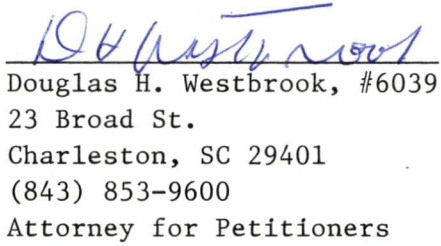 D H Westbrook
Douglas H. Westbrook, #6039
23 Broad St.
Charleston, SC 29401
(843) 853-9600
Attorney for Petitioners